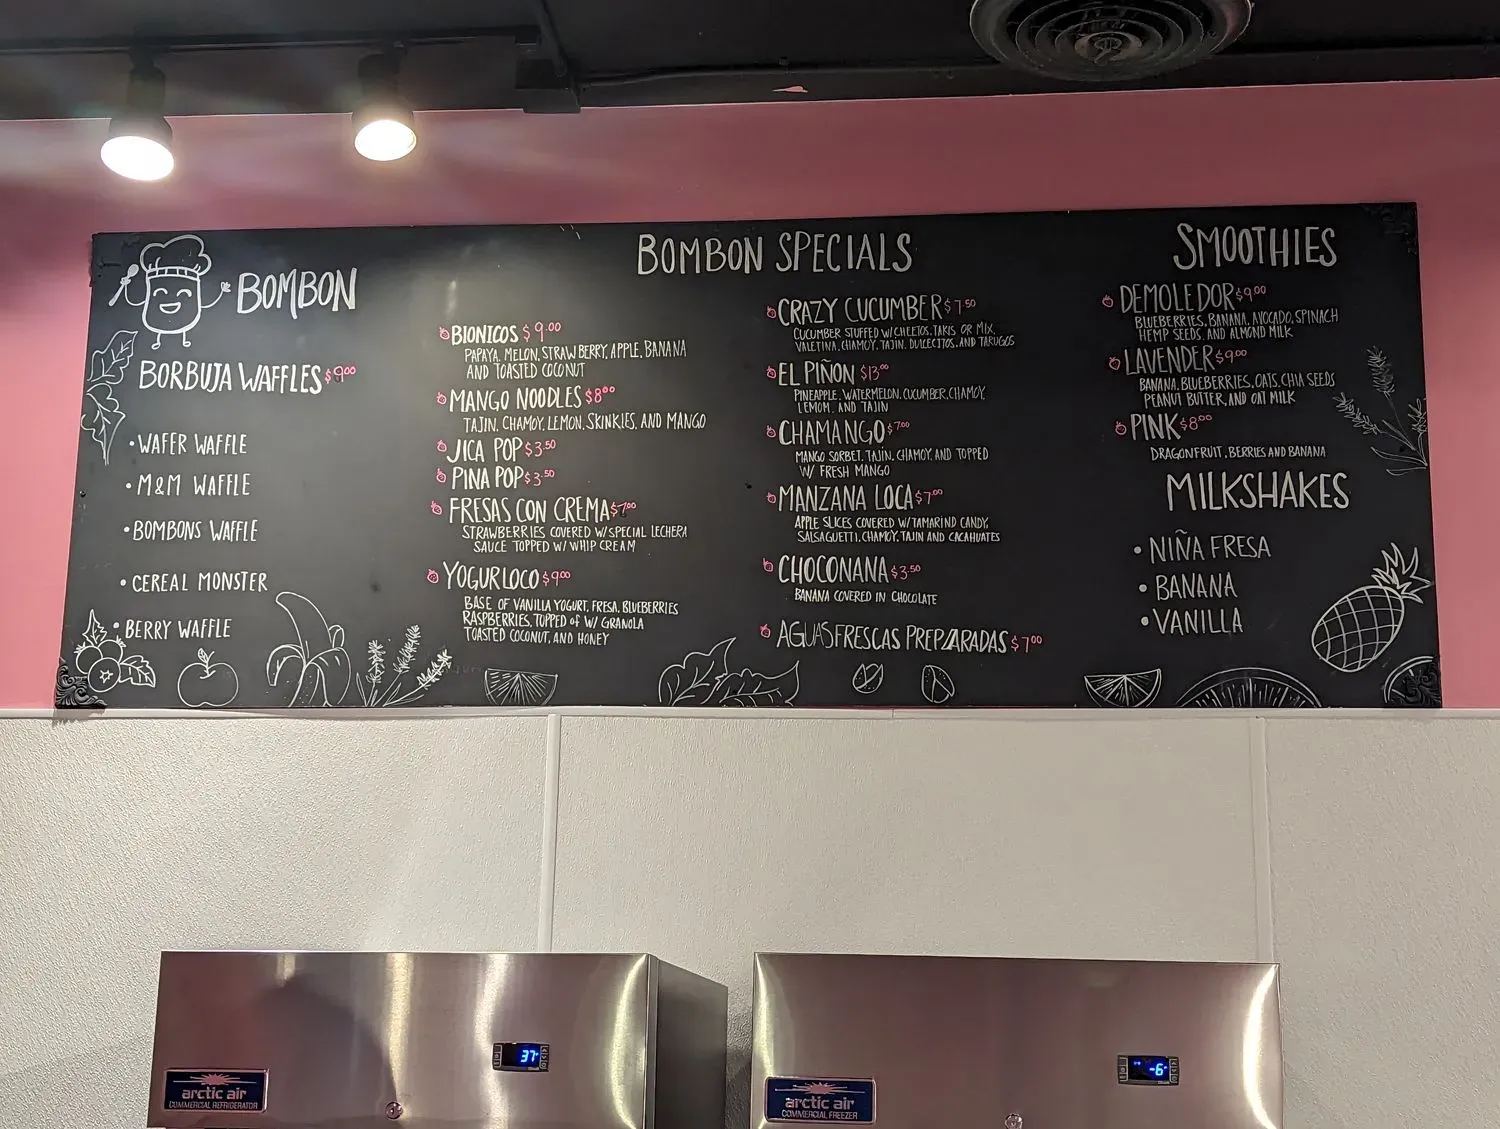 BOMBON
BORBUJA WAFFLES $9.00
• WAFER WAFFLE
• M&M WAFFLE
• BOMBONS WAFFLE
• CEREAL MONSTER
• BERRY WAFFLE
BOMBON SPECIALS
BIONICOS $9.00
PAPAYA, MELON, STRAWBERRY, APPLE, BANANA
AND TOASTED COCONUT
MANGO NOODLES $8.00
TAJIN, CHAMOY, LEMON, SKINKIES, AND MANGO
JICA POP $3.50
PINA POP $3.50
FRESAS CON CREMA $7.00
STRAWBERRIES COVERED W/SPECIAL LECHERA
SAUCE TOPPED W/ WHIP CREAM
YOGURLOCO $9.00
BASE OF VANILLA YOGURT, FRESA, BLUEBERRIES
RASPBERRIES, TOPPED OF W/ GRANOLA
TOASTED COCONUT, AND HONEY
CRAZY CUCUMBER $7.50
CUCUMBER STUFFED W/CHEETOS, TAKIS OR MIX,
VALETINA, CHAMOY, TAJIN, DULCECITOS, AND TARUGOS
EL PIÑON $13.00
PINEAPPLE, WATERMELON, CUCUMBER, CHAMOY,
LEMON, AND TAJIN
CHAMANGO $7.00
MANGO SORBET, TAJIN, CHAMOY, AND TOPPED
W/ FRESH MANGO
MANZANA LOCA $7.00
APPLE SLICES COVERED W/TAMARIND CANDY,
SALSAGUETTI, CHAMOY, TAJIN AND CACAHUATES
CHOCONANA $3.50
BANANA COVERED IN CHOCOLATE
AGUAS FRESCAS PREPARADAS $7.00
SMOOTHIES
DEMOLEDOR $9.00
BLUEBERRIES, BANANA, AVOCADO, SPINACH
HEMP SEEDS, AND ALMOND MILK
LAVENDER $9.00
BANANA, BLUEBERRIES, OATS, CHIA SEEDS
PEANUT BUTTER, AND OAT MILK
PINK $8.00
DRAGONFRUIT, BERRIES AND BANANA
MILKSHAKES
• NIÑA FRESA
• BANANA
• VANILLA
37°
arctic air
COMMERCIAL REFRIGERATOR
-6°
arctic air
COMMERCIAL FREEZER